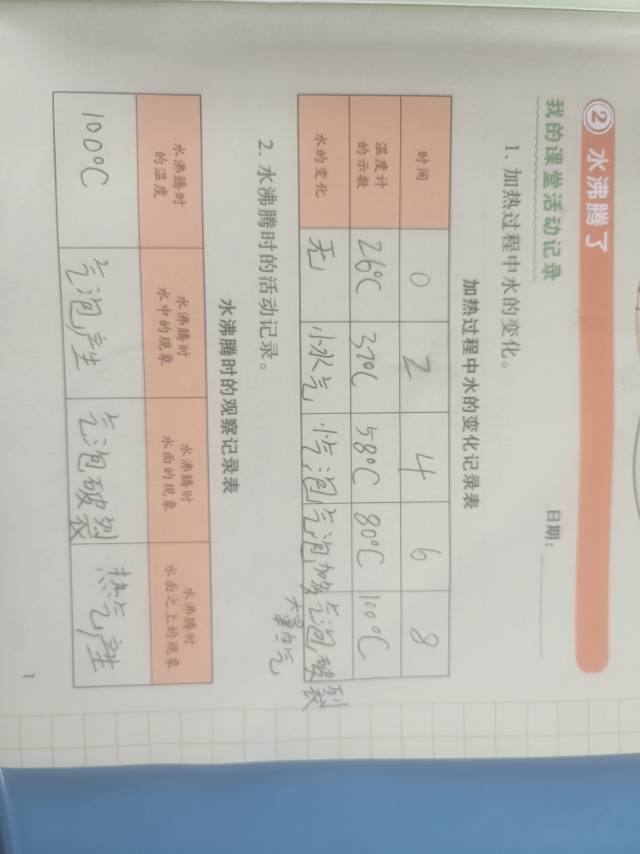 ② 水沸腾了
我的课堂活动记录
日期：
1. 加热过程中水的变化。
加热过程中水的变化记录表
时间 0 2 4 6 8
温度计的示数 26℃ 37℃ 58℃ 80℃ 100℃
水的变化 无 小水气 小气泡 气泡加多 气泡破裂
大量白气
2. 水沸腾时的活动记录。
水沸腾时的观察记录表
水沸腾时的温度 水沸腾时水中的现象 水沸腾时水面的现象 水沸腾时水面之上的现象
100℃ 气泡产生 气泡破裂 热气产生
1